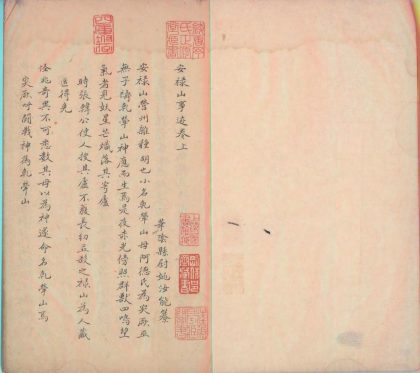 安祿山事迹卷上
華陰縣尉姚汝能纂
安祿山營州雜種胡也小名軋犖山母阿德氏為突厥巫
無子禱軋犖山神應而生焉是夜赤光傍照群獸四鳴望
氣者見妖星芒熾落其穹廬
時張韓公使人搜其廬不獲長幼並殺之祿山為人藏
匿得免
怪兆奇異不可悉數其母以為神遂命名軋犖山焉
突厥呼鬭戰神為軋犖山